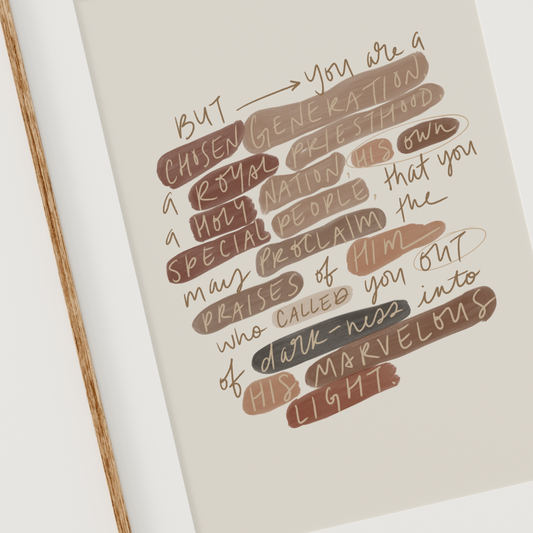 BUT → you are a
CHOSEN GENERATION
a ROYAL PRIESTHOOD
a HOLY NATION, HIS own
SPECIAL PEOPLE, that you
may PROCLAIM the
PRAISES of HIM
who CALLED you OUT
of dark-ness into
HIS MARVELOUS
LIGHT.